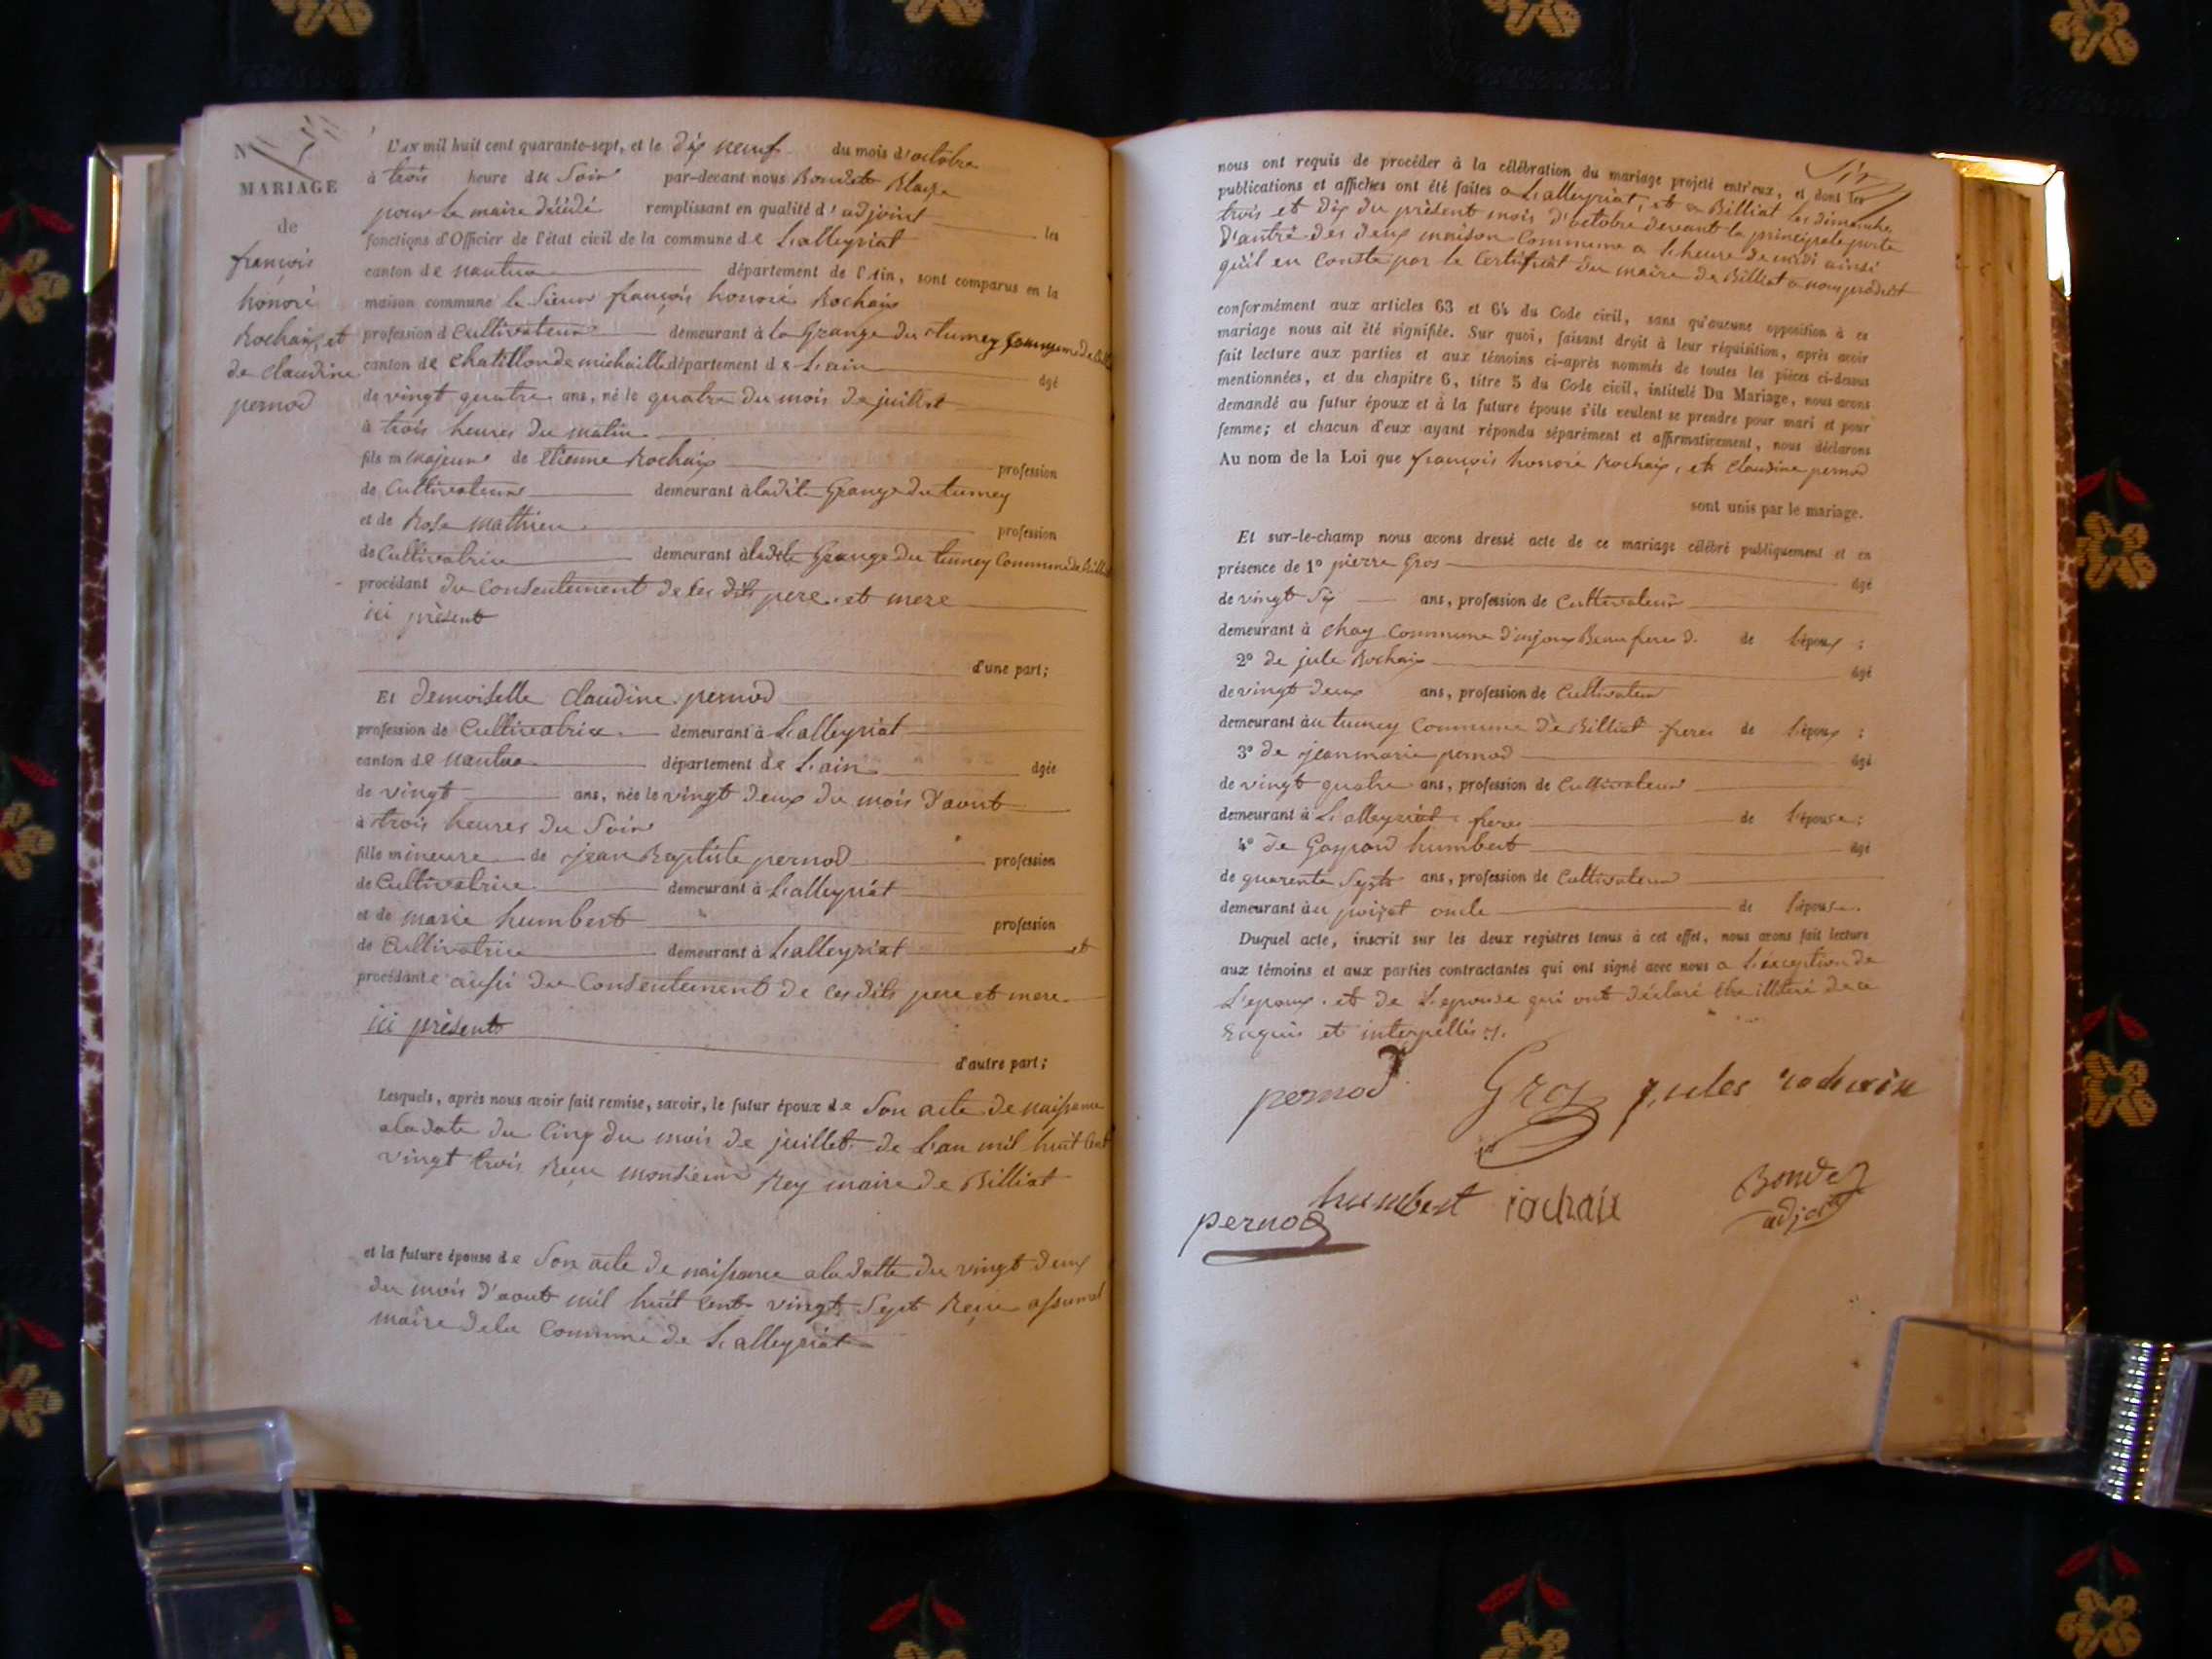 N
MARIAGE
de
françois
honoré
Rochaix et
de claudine
pernod
L'AN mil huit cent quarante-sept, et le dix neuf du mois d'octobre
à trois heure du Soir par-devant nous Bondet Blaize
pour le maire décédé remplissant en qualité d'adjoint les
fonctions d'Officier de l'état civil de la commune de Lalleyriat
canton de nantua département de l'Ain, sont comparus en la
maison commune le Sieur françois honoré Rochaix
profession d Cultivateur demeurant à la Grange du tumey Commune de
canton de chatillon de michaille département de L'ain âgé
de vingt quatre ans, né le quatre du mois de juillet
à trois heures du matin
fils majeur de Etienne Rochaix profession
de Cultivateur demeurant à ladite Grange du tumey
et de Rose mathieu profession
de Cultivatrice demeurant à ladite Grange du tumey Commune de Billiat
procédant du Consentement de ses dits pere et mere
ici présent
d'une part;
Et demoiselle Claudine pernod
profession de Cultivatrice demeurant à Lalleyriat
canton de nantua département de L'ain âgée
de vingt ans, née le vingt deux du mois d'aout
à trois heures du Soir
fille mineure de jean Baptiste pernod profession
de Cultivatrice demeurant à Lalleyriat
et de marie humbert profession
de Cultivatrice demeurant à Lalleyriat et
procédante aussi du Consentement de ces dits pere et mere
ici présents
d'autre part;
Lesquels, après nous avoir fait remise, savoir, le futur époux de Son acte de naissance
a la date du Cinq du mois de juillet de L'an mil huit Cent
vingt trois Reçu monsieur Rey maire de Billiat
et la future épouse de Son acte de naissance a la datte du vingt deux
du mois d'aout mil huit Cent vingt Sept Reçu
maire de la Commune de Lalleyriat
nous ont requis de procéder à la célébration du mariage projeté entr'eux, et dont les
publications et affiches ont été faites a Lalleyriat, et a Billiat les dimanche
trois et dix du présent mois d'octobre devant la principale porte
d'antré des deux maison Commune a Lheure de midi ainsi
qu'il en Conste par le Certificat du maire de Billiat a nous produit
conformément aux articles 63 et 64 du Code civil, sans qu'aucune opposition à ce
mariage nous ait été signifiée. Sur quoi, faisant droit à leur réquisition, après avoir
fait lecture aux parties et aux témoins ci-après nommés de toutes les pièces ci-dessus
mentionnées, et du chapitre 6, titre 5 du Code civil, intitulé Du Mariage, nous avons
demandé au futur époux et à la future épouse s'ils veulent se prendre pour mari et pour
femme; et chacun d'eux ayant répondu séparément et affirmativement, nous déclarons
Au nom de la Loi que françois honoré Rochaix, et Claudine pernod
sont unis par le mariage.
Et sur-le-champ nous avons dressé acte de ce mariage célébré publiquement et en
présence de 1° pierre Gros âgé
de vingt Six ans, profession de Cultivateur
demeurant à Chay Commune d'injoux Beau frere d. de L'époux;
2° de jule Rochaix âgé
de vingt deux ans, profession de Cultivateur
demeurant au tumey Commune de Billiat frere de L'époux;
3° de jean marie pernod âgé
de vingt quatre ans, profession de Cultivateur
demeurant à Lalleyriat frere de L'épouse;
4° de Gaspard humbert âgé
de quarente Septs ans, profession de Cultivateur
demeurant au poizat oncle de L'épouse.
Duquel acte, inscrit sur les deux registres tenus à cet effet, nous avons fait lecture
aux témoins et aux parties contractantes qui ont signé avec nous a L'éxception de
L'époux et de L'epouse qui ont déclaré être illitéré de ce
Enquis et interpellés
pernod Gros jules rochaix
humbert rochaix Bondet
pernod adjoint